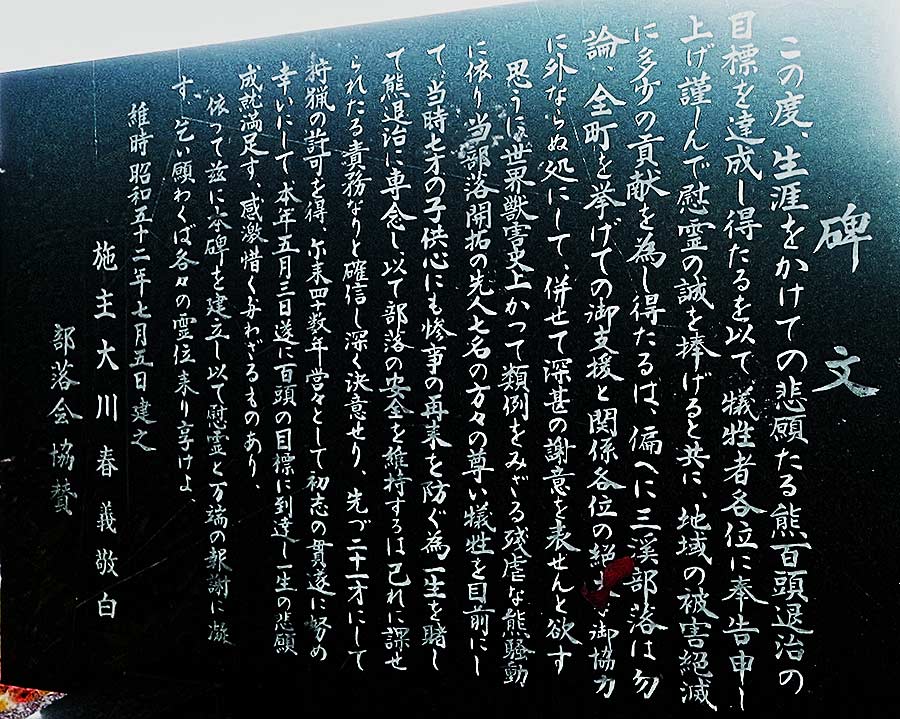 碑文
この度、生涯をかけての悲願たる熊百頭退治の
目標を達成し得たるを以て犠牲者各位に奉告申し
上げ謹しんで慰霊の誠を捧げると共に、地域の被害絶滅
に多少の貢献を為し得たるは、偏へに三渓部落は勿
論、全町を挙げての御支援と関係各位の絶大な御協力
に外ならぬ処にして、併せて深甚の謝意を表せんと欲す
思うに、世界獣害史上かつて類例をみざる残虐な熊騒動
に依り当部落開拓の先人七名の方々の尊い犠牲を目前にし
て、当時七才の子供心にも惨事の再来を防ぐ為一生を賭し
て熊退治に専念し以て部落の安全を維持するは己れに課せ
られたる責務なりと確信し深く決意せり、先づ二十一才にして
狩猟の許可を得、尓来四十数年営々として初志の貫遂に努め
幸いにして本年五月三日遂に百頭の目標に到達し一生の悲願
成就満足す、感激惜く与わざるものあり、
依って茲に本碑を建立し以て慰霊と万端の報謝に凝
す、乞い願わくば各々の霊位来り享けよ、
維時昭和五十二年七月五日建之
施主大川春義敬白
部落会協賛